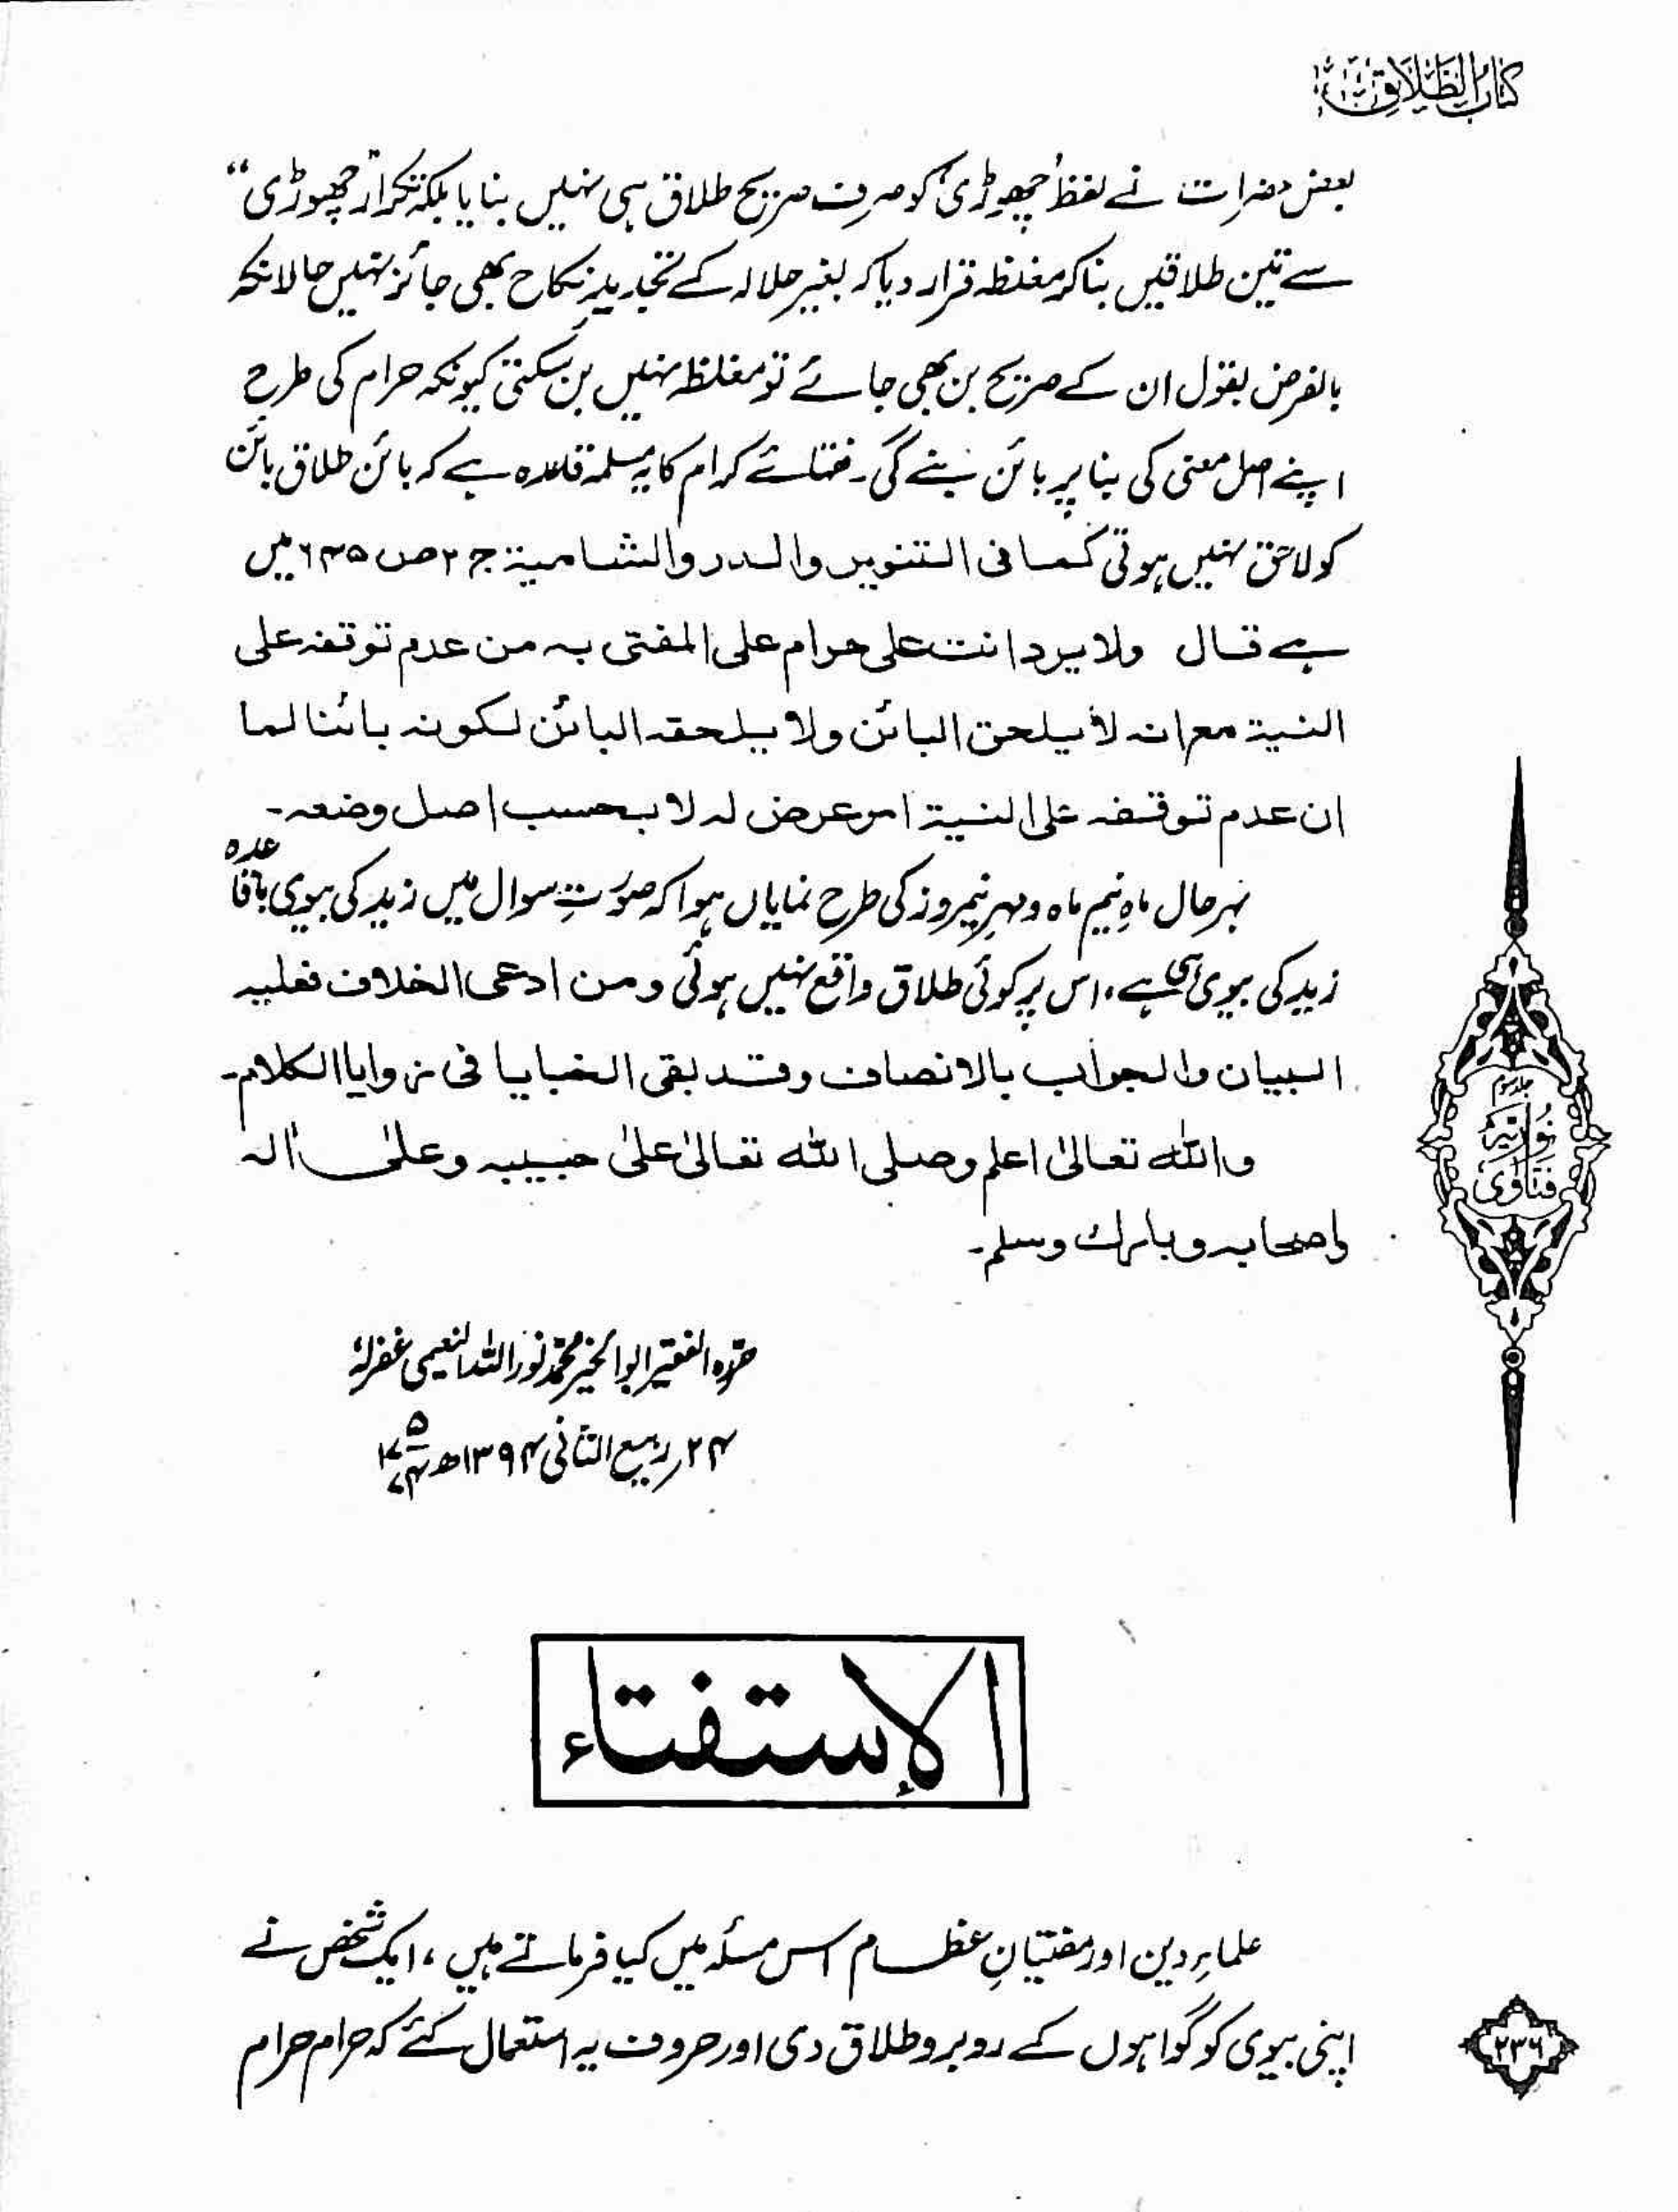 کتاب الطلاق
بعض حضرات نے لفظ "چھوڑی" کو صرف صریح طلاق ہی نہیں بنایا بلکہ تکرار "چھوڑی"
سے تین طلاقیں بنا کر مغلظہ قرار دیا کہ بغیر حلالہ کے تجدیدِ نکاح بھی جائز نہیں حالانکہ
بالفرض بقول ان کے صریح بن بھی جائے تو مغلظہ نہیں بن سکتی کیونکہ حرام کی طرح
اپنے اصل معنی کی بنا پر بائن بنے گی۔ فقہائے کرام کا یہ مسلمہ قاعدہ ہے کہ بائن طلاق بائن
کو لاحق نہیں ہوتی کما فی التنویر والدر والشامیۃ ج ۲ ص ۶۴۵ میں
ہے قال ولا یرد انت علی حرام علی المفتی بہ من عدم توقفہ علی
النیۃ مع انہ لا یلحق البائن ولا یلحقہ البائن لکونہ بائنا لما
ان عدم توقفہ علی النیۃ امر عرض لہ لا بحسب اصل وضعہ۔
بہرحال ماہِ نیم ماہ و مہرِ نیمروز کی طرح نمایاں ہوا کہ صورتِ سوال میں زید کی بیوی باقاعدہ
زید کی بیوی ہی ہے، اس پر کوئی طلاق واقع نہیں ہوئی ومن ادعی الخلاف فعلیہ
البیان والجواب بالانصاف وقد بقی الخبایا فی زوایا الکلام۔
واللہ تعالیٰ اعلم وصلی اللہ تعالیٰ علیٰ حبیبہ وعلیٰ اٰلہ
واصحابہ وبارك وسلم۔
حررہ الفقیر ابوالخیر محمد نور اللہ النعیمی غفرلہٗ
۲۴ ربیع الثانی ۱۳۹۴ھ
فتاویٰ نوریہ
الإستفتاء
علماءِ دین اور مفتیانِ عظام اس مسئلہ میں کیا فرماتے ہیں، ایک شخص نے
اپنی بیوی کو گواہوں کے روبرو طلاق دی اور حروف یہ استعمال کئے کہ حرام حرام
۲۳۶